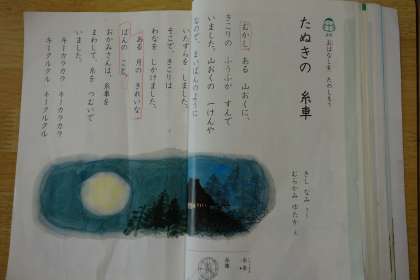 おはなしを たのしもう
たぬきの 糸車
きし なみ
むらかみ ゆたか え
むかし、ある 山おくに、
きこりの ふうふが すんで
いました。山おくの 一けんや
なので、まいばんのように
いたずらを しました。
そこで、きこりは
わなを しかけました。
ある 月の きれいな
ばんの こと、
おかみさんは、糸車を
まわして、糸を つむいで
いました。
キーカラカラ キーカラカラ
キークルクル キークルクル
糸車